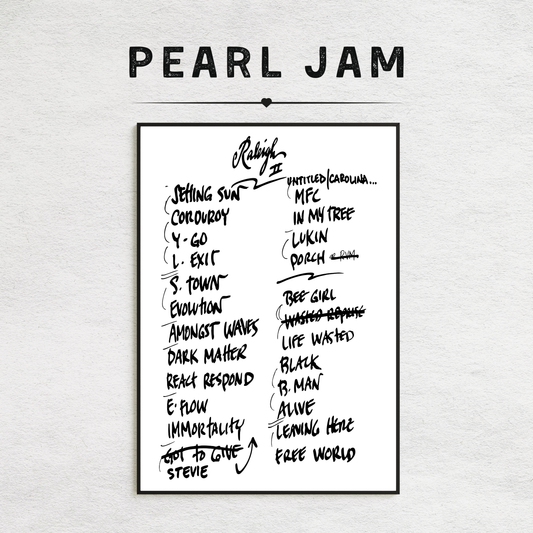 PEARL JAM
Raleigh
II
SETTING SUN
CORDUROY
Y-GO
L. EXIT
S. TOWN
EVOLUTION
AMONGST WAVES
DARK MATTER
REACT RESPOND
E. FLOW
IMMORTALITY
GOT TO GIVE
STEVIE
UNTITLED/CAROLINA...
MFC
IN MY TREE
LUKIN
PORCH
BEE GIRL
WASTED REPRISE
LIFE WASTED
BLACK
B. MAN
ALIVE
LEAVING HERE
FREE WORLD